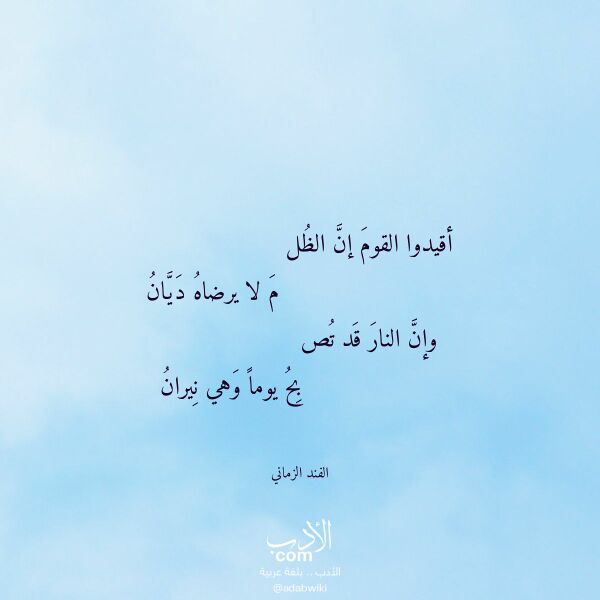 أقيدوا القومَ إنَّ الظُل
مَ لا يرضاهُ دَيَّانُ
وإنَّ النارَ قَد تُص
بِحُ يوماً وَهي نِيرانُ
الفند الزماني
الأدب
com
الأدب .. بلغة عربية
@adabwiki